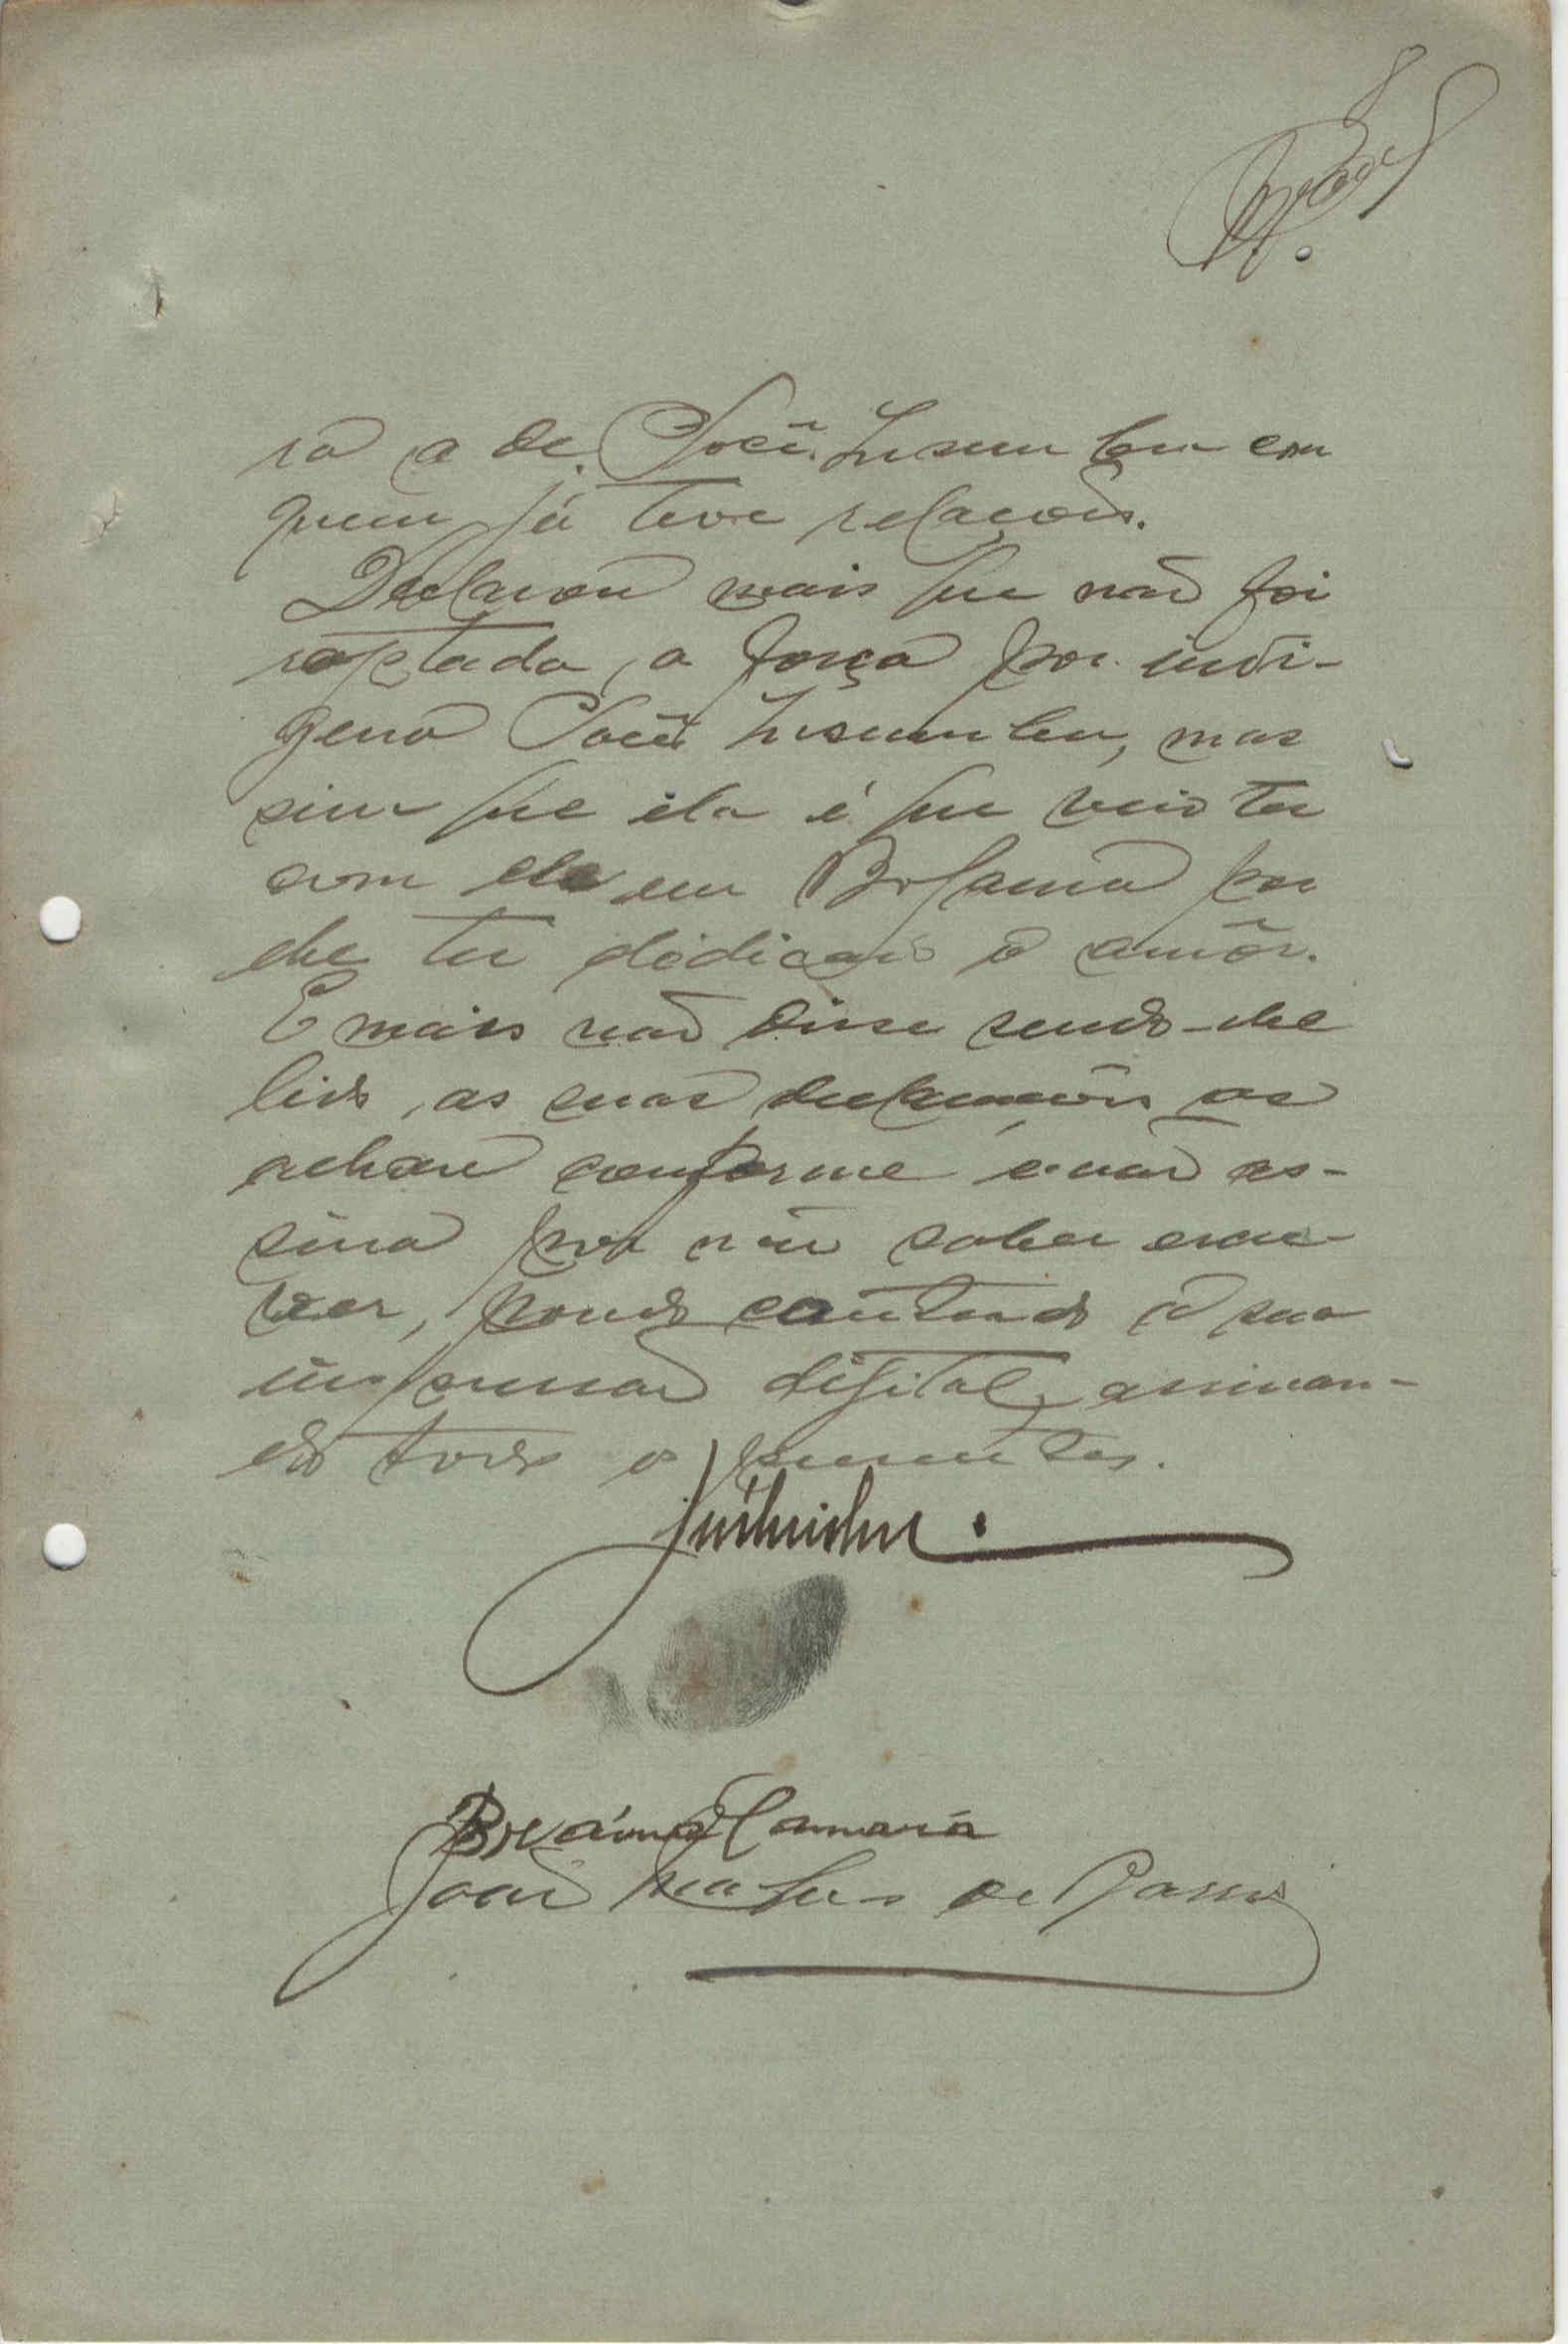 ra a de com
quem já teve relações.
Declarou mais que não foi
raptada, a força por indi-
gena mas
sim que ela é que veio ter
com ele em Bolama por
lhe ter dedicado o amôr.
E mais não disse sendo-lhe
lido, as suas declarações as
achou conforme e não as-
sina por não saber escre-
ver, pondo contudo a sua
impressão digital, assinan-
do todos os presentes.
Braima Camará
João de Barros